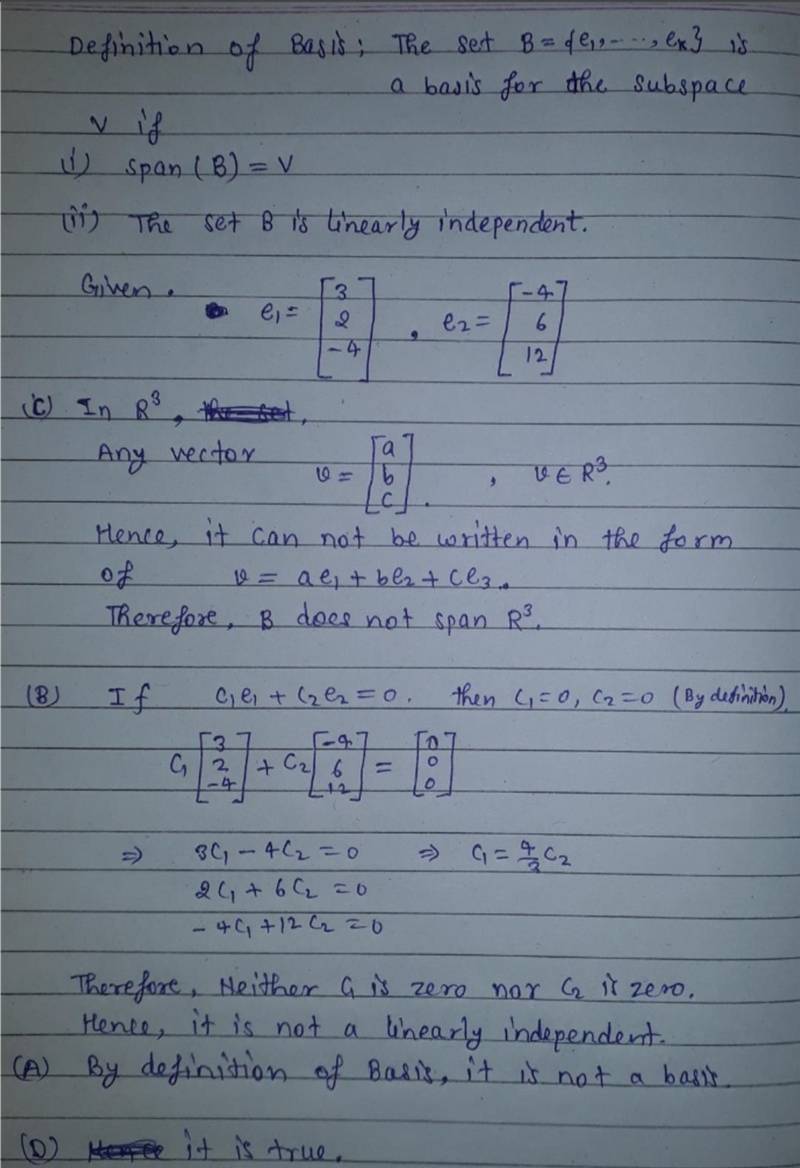 Definition of Basis; The set B = {e₁, ----, eₖ} is
a basis for the subspace
V if
(i) span (B) = V
(ii) The set B is linearly independent.
Given. e₁ = [3 2 -4], e₂ = [-4 6 12]
(C) In R³,
Any vector v = [a b c]. , v ∈ R³.
Hence, it can not be written in the form
of v = ae₁ + be₂ + ce₃.
Therefore, B does not span R³.
(B) If c₁e₁ + c₂e₂ = 0. then c₁ = 0, c₂ = 0 (By definition)
c₁ [3 2 -4] + c₂ [-4 6 12] = [0 0 0]
⇒ 3c₁ - 4c₂ = 0 ⇒ c₁ = 4/3 c₂
2c₁ + 6c₂ = 0
- 4c₁ + 12c₂ = 0
Therefore, Neither c₁ is zero nor c₂ is zero.
Hence, it is not a linearly independent.
(A) By definition of Basis, it is not a basis.
(D) it is true.